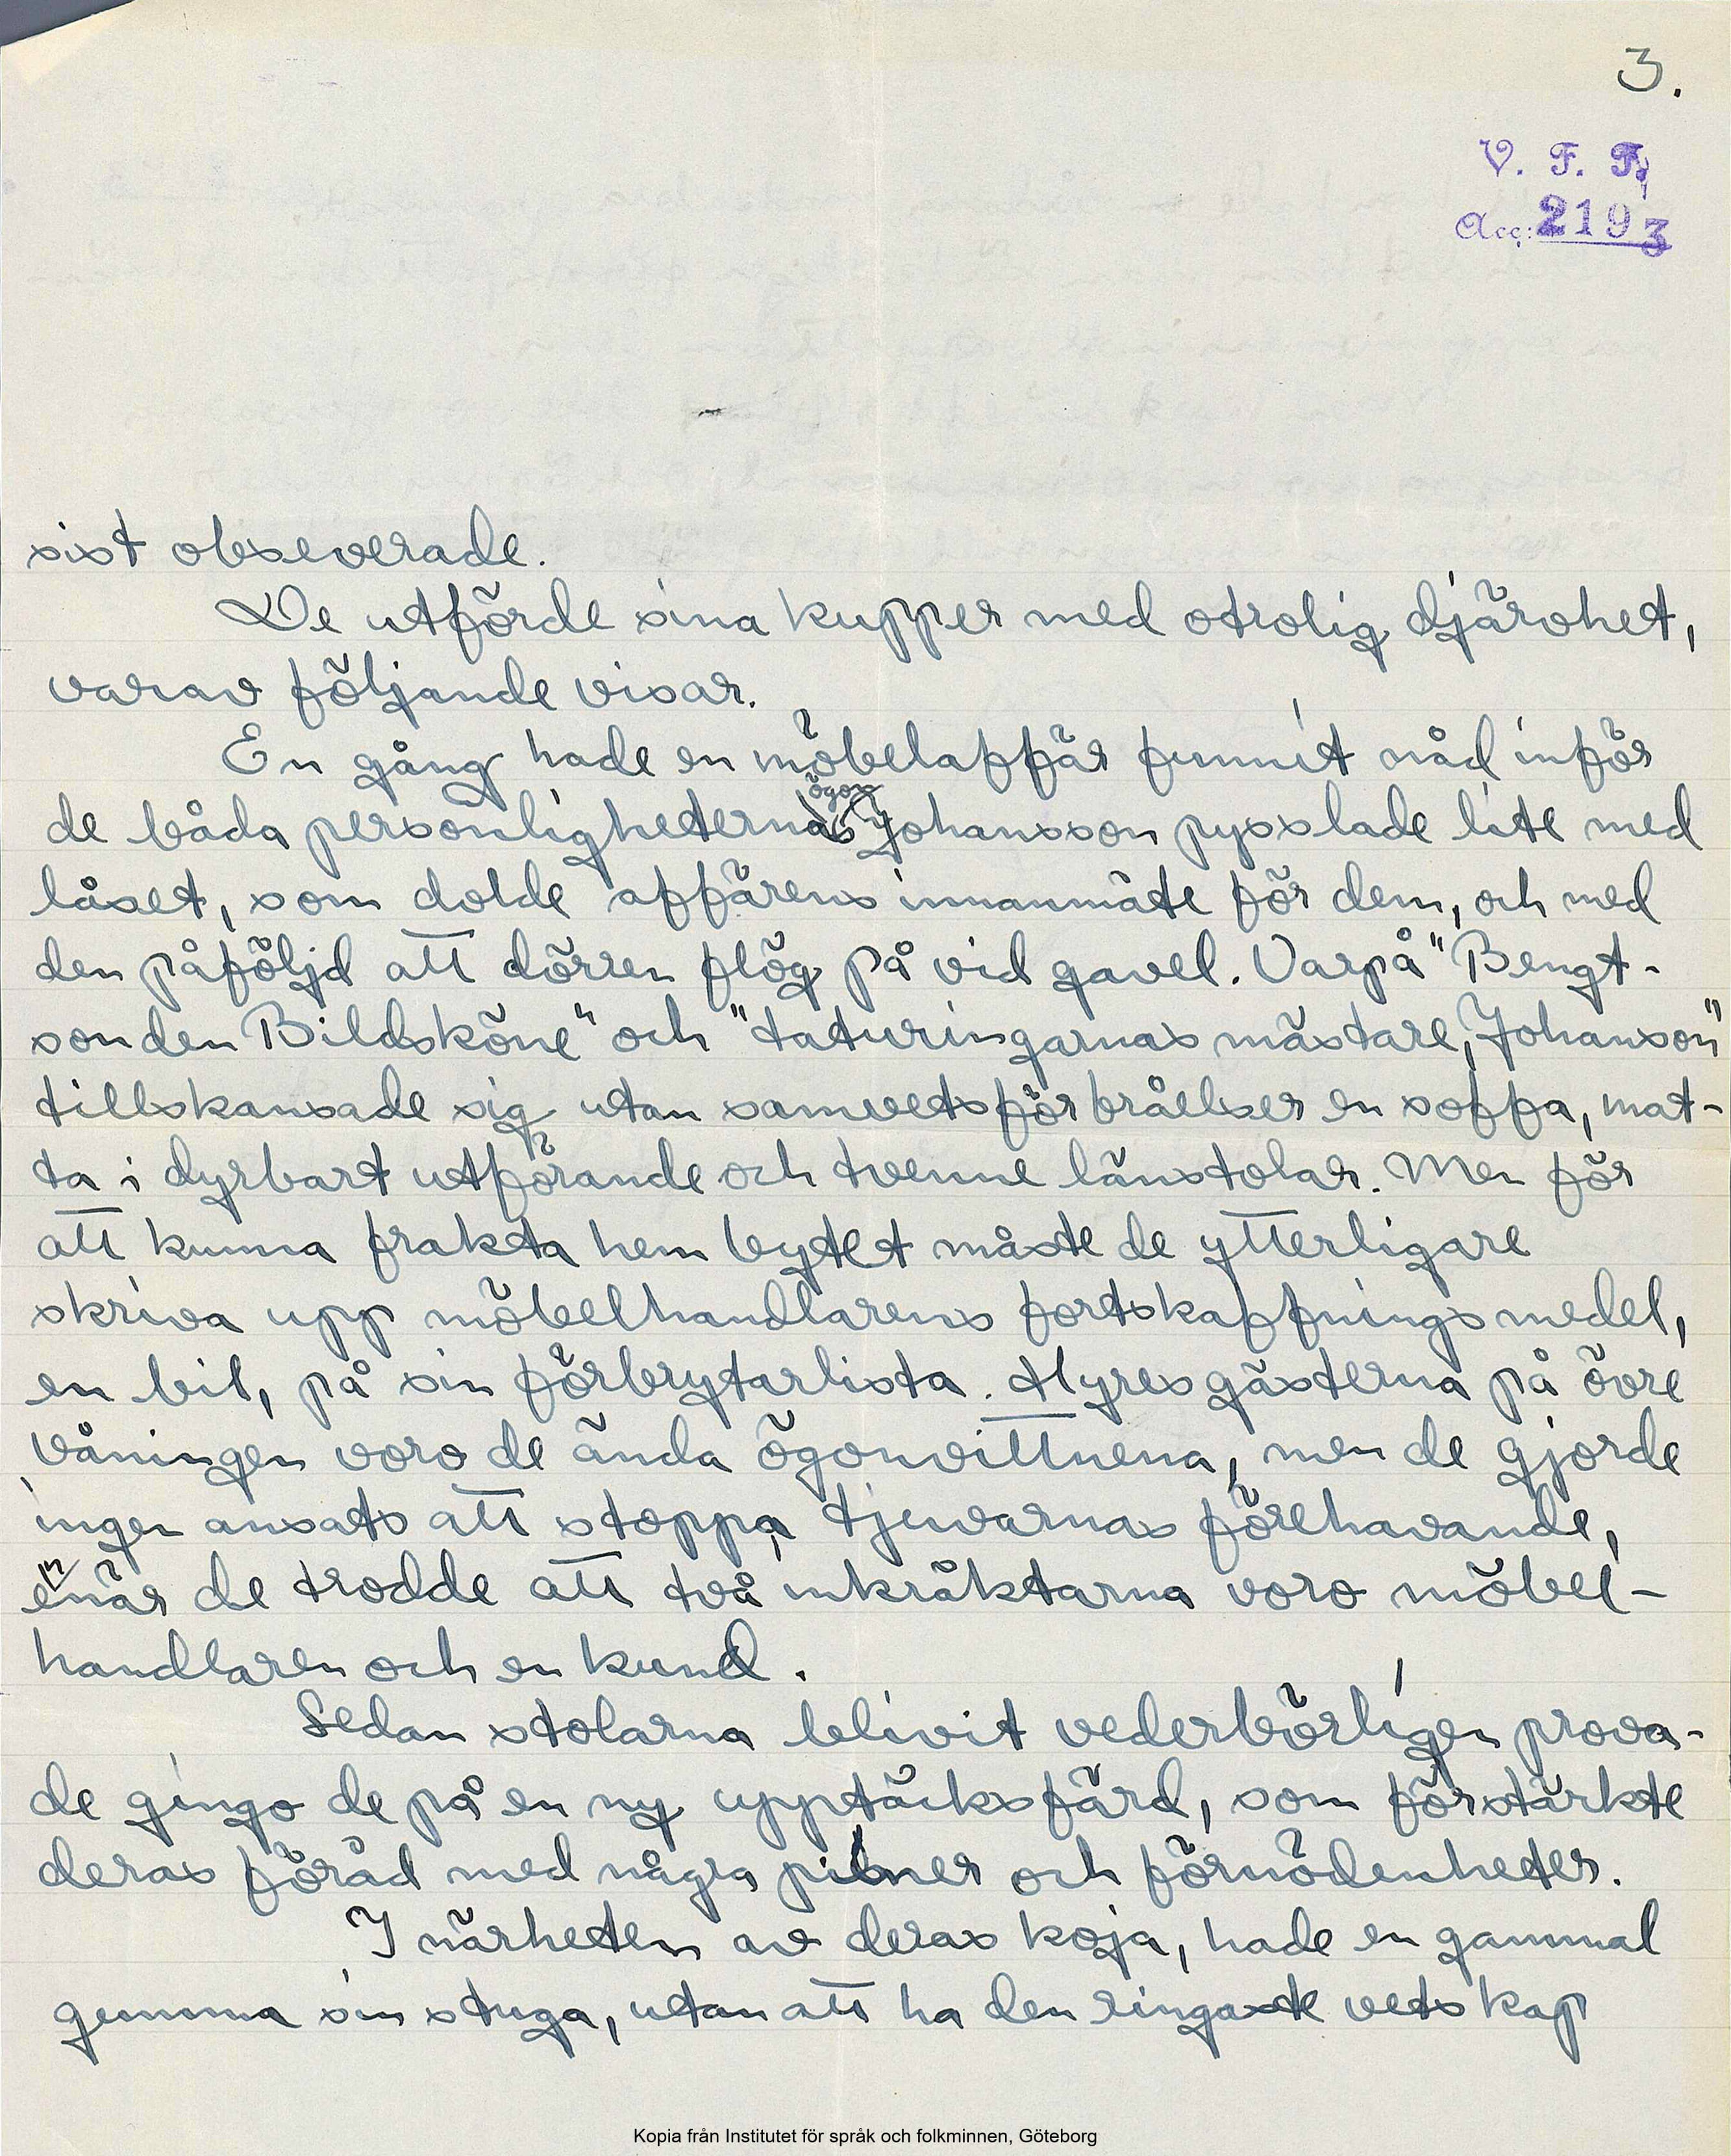 3.
V. F. F.
Acc: 2193
sist obseverade.
De utförde sina kupper med otrolig djärvhet,
varav följande visar.
En gång hade en möbelaffär funnit nåd inför
ögon
de båda personligheternas Johansson pysslade lite med
låset, som dolde affärens innanmäte för dem, och med
den påföljd att dörren flög på vid gavel. Varpå "Bengt-
son den Bildsköne" och "taturingarnas mästare, Johanson"
tillskansade sig utan samvetsförbråelser en soffa, mat-
ta i dyrbart utförande och tvenne länstolar. Men för
att kunna frakta hem bytet måste de ytterligare
skriva upp möbelhandlarens fortskaffningsmedel,
en bil, på sin förbrytarlista. Hyresgästerna på övre
våningen voro de ända ögonvittnena, men de gjorde
ingen ansats att stoppa tjuvarnas förehavande,
enär de trodde att två inkräktarna voro möbel-
handlaren och en kund.
Sedan stolarna blivit vederbörligen prova-
de gingo de på en ny upptäcksfärd, som förstärkte
deras föråd med några pilsner och förnödenheter.
I närheten av deras koja, hade en gammal
gumma sin stuga, utan att ha den ringaste vetskap
Kopia från Institutet för språk och folkminnen, Göteborg